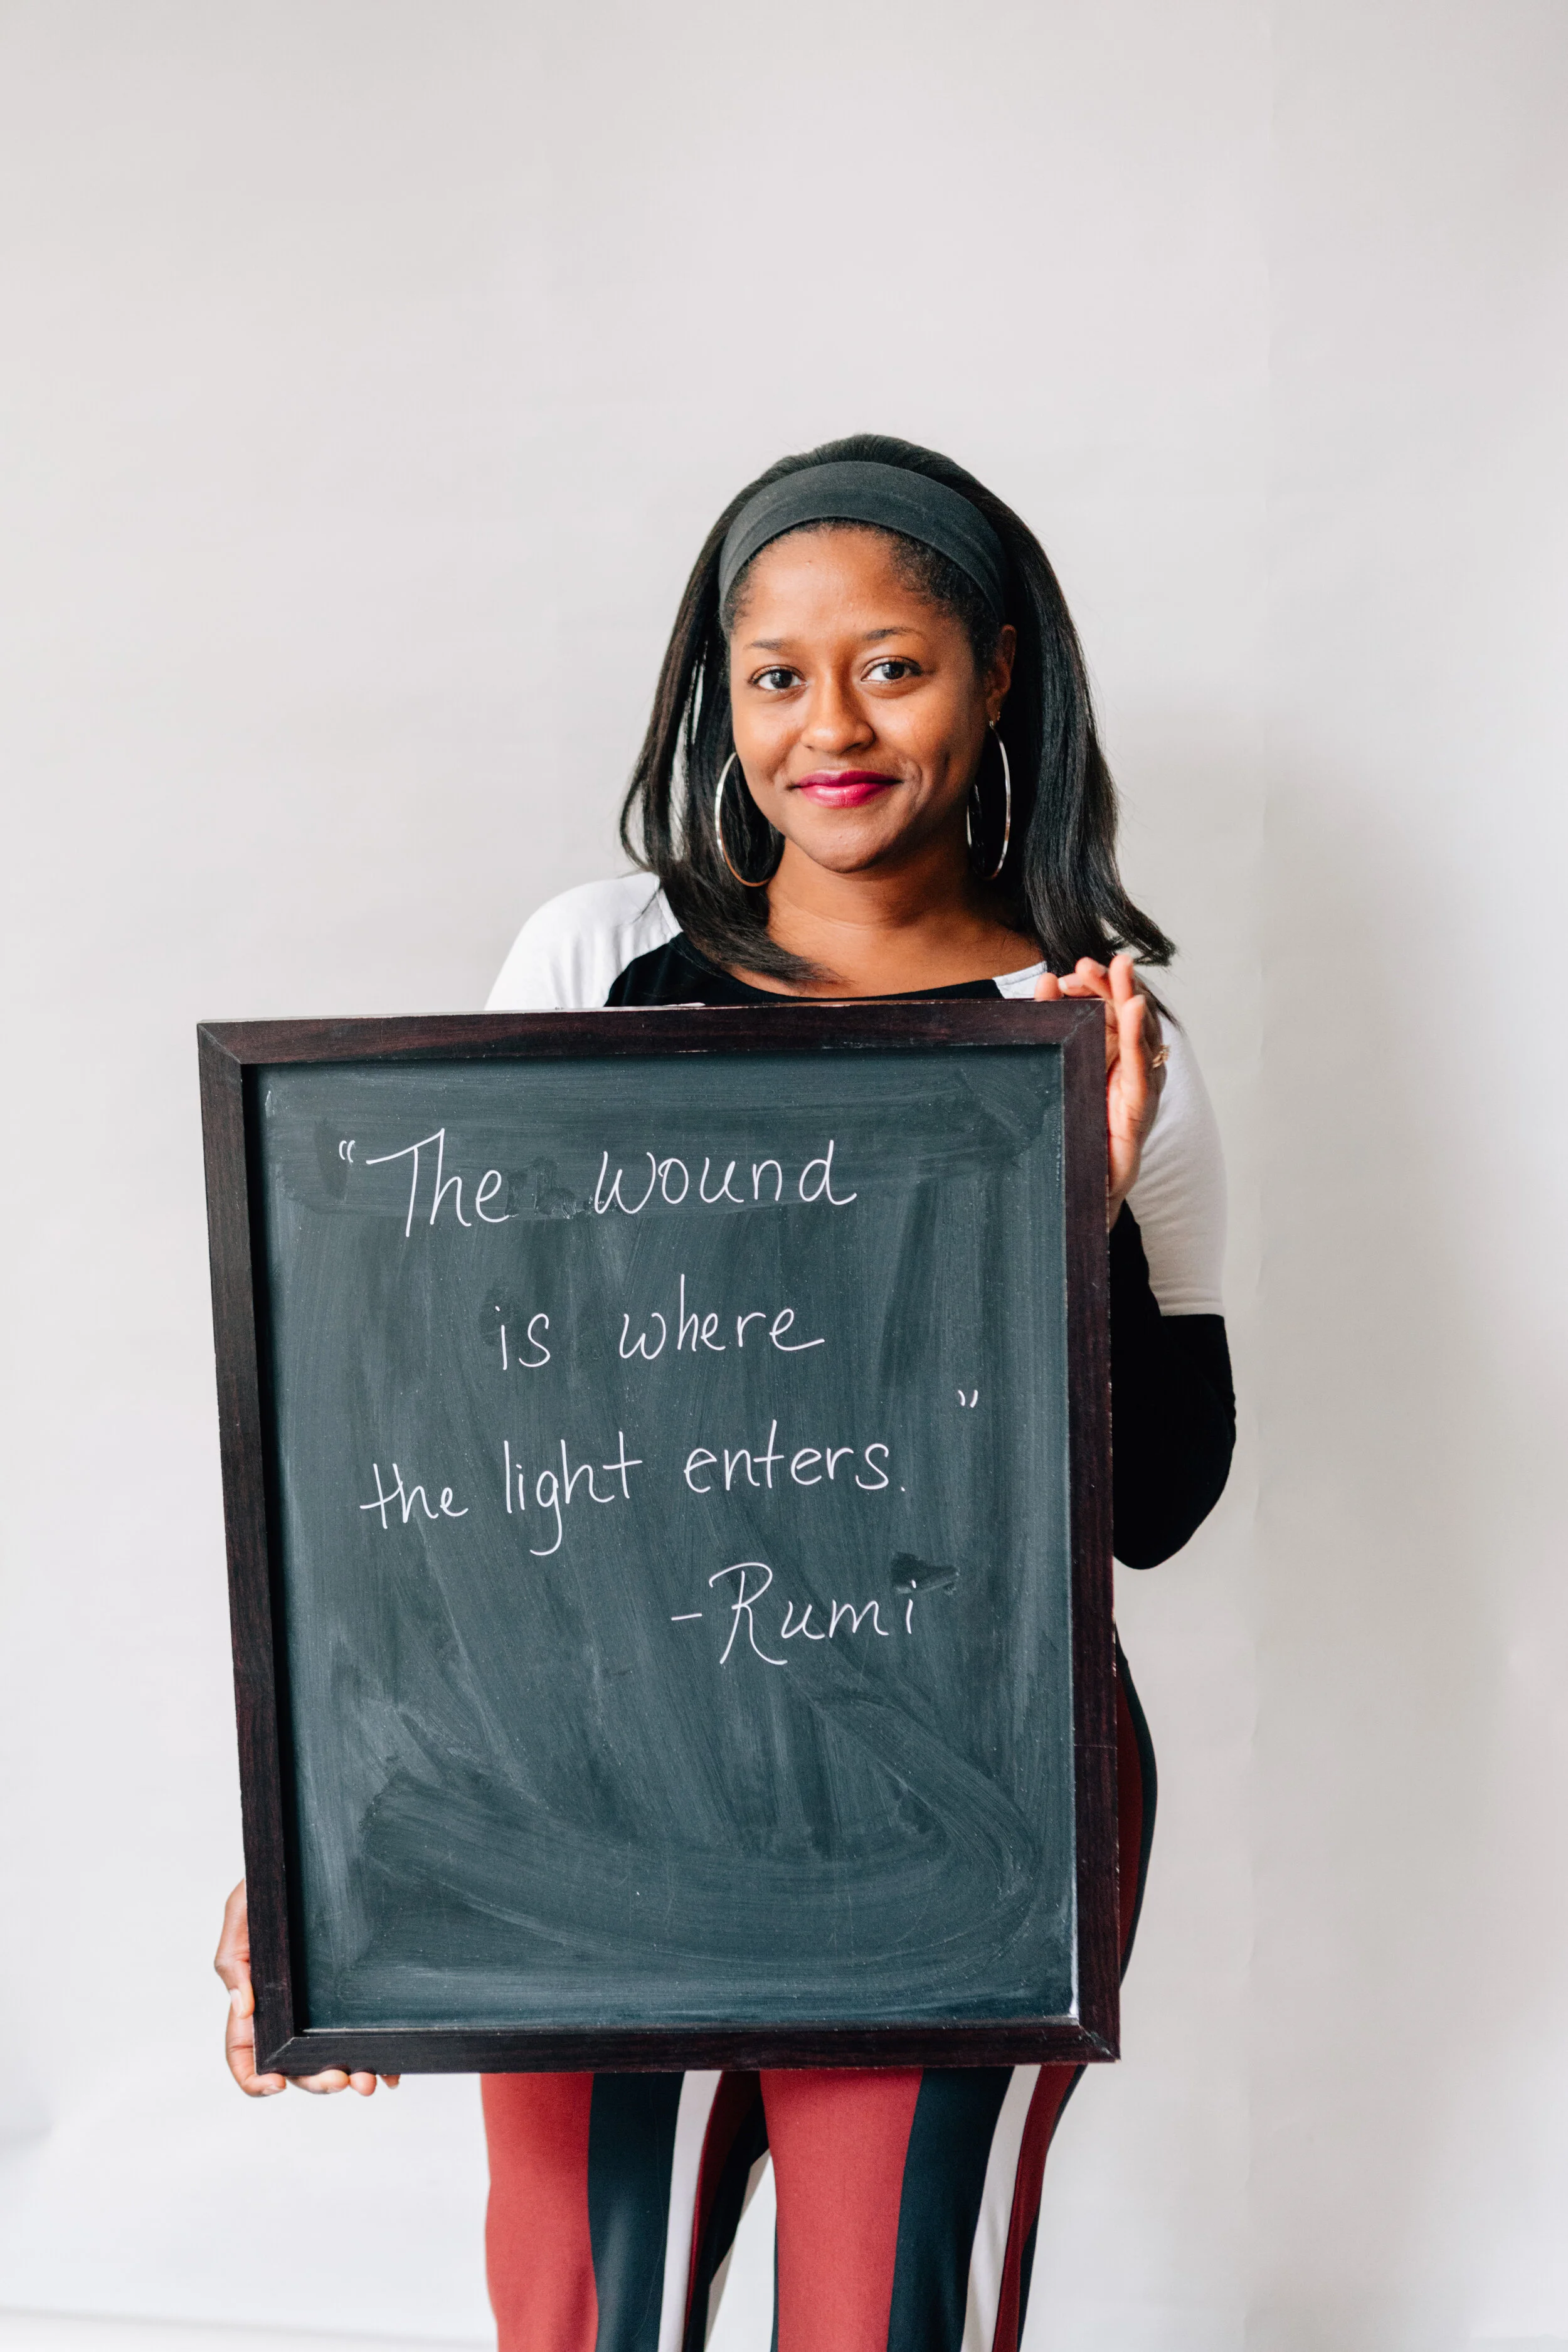 "The wound
is where
the light enters."
-Rumi